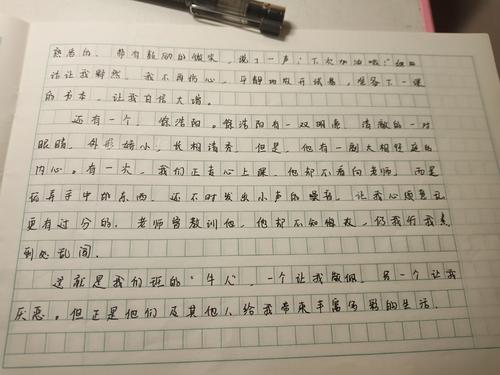 熟悉的、带有鼓励的微笑，说了一声："下次加油哦"。
话让我释然。我不再伤心，平静地放开试卷，准备下一课
的书本，让我自信大增。
还有一个，徐浩阳。徐浩阳有一双明亮、清澈的一对
眼睛，外形矮小，长相清秀。但是，他有一副大相径庭的
内心。有一次，我们正专心上课，他却不看向老师，而是
玩弄手中的东西，还不时发出小声的噪音，让我心烦意乱
更有过分的，老师曾教训他，他却不知悔改，仍我行我素
到处乱闹。
这就是我们班的"牛人"，一个让我敬佩，另一个让我
厌恶。但正是他们及其他人给我带来丰富多彩的生活。